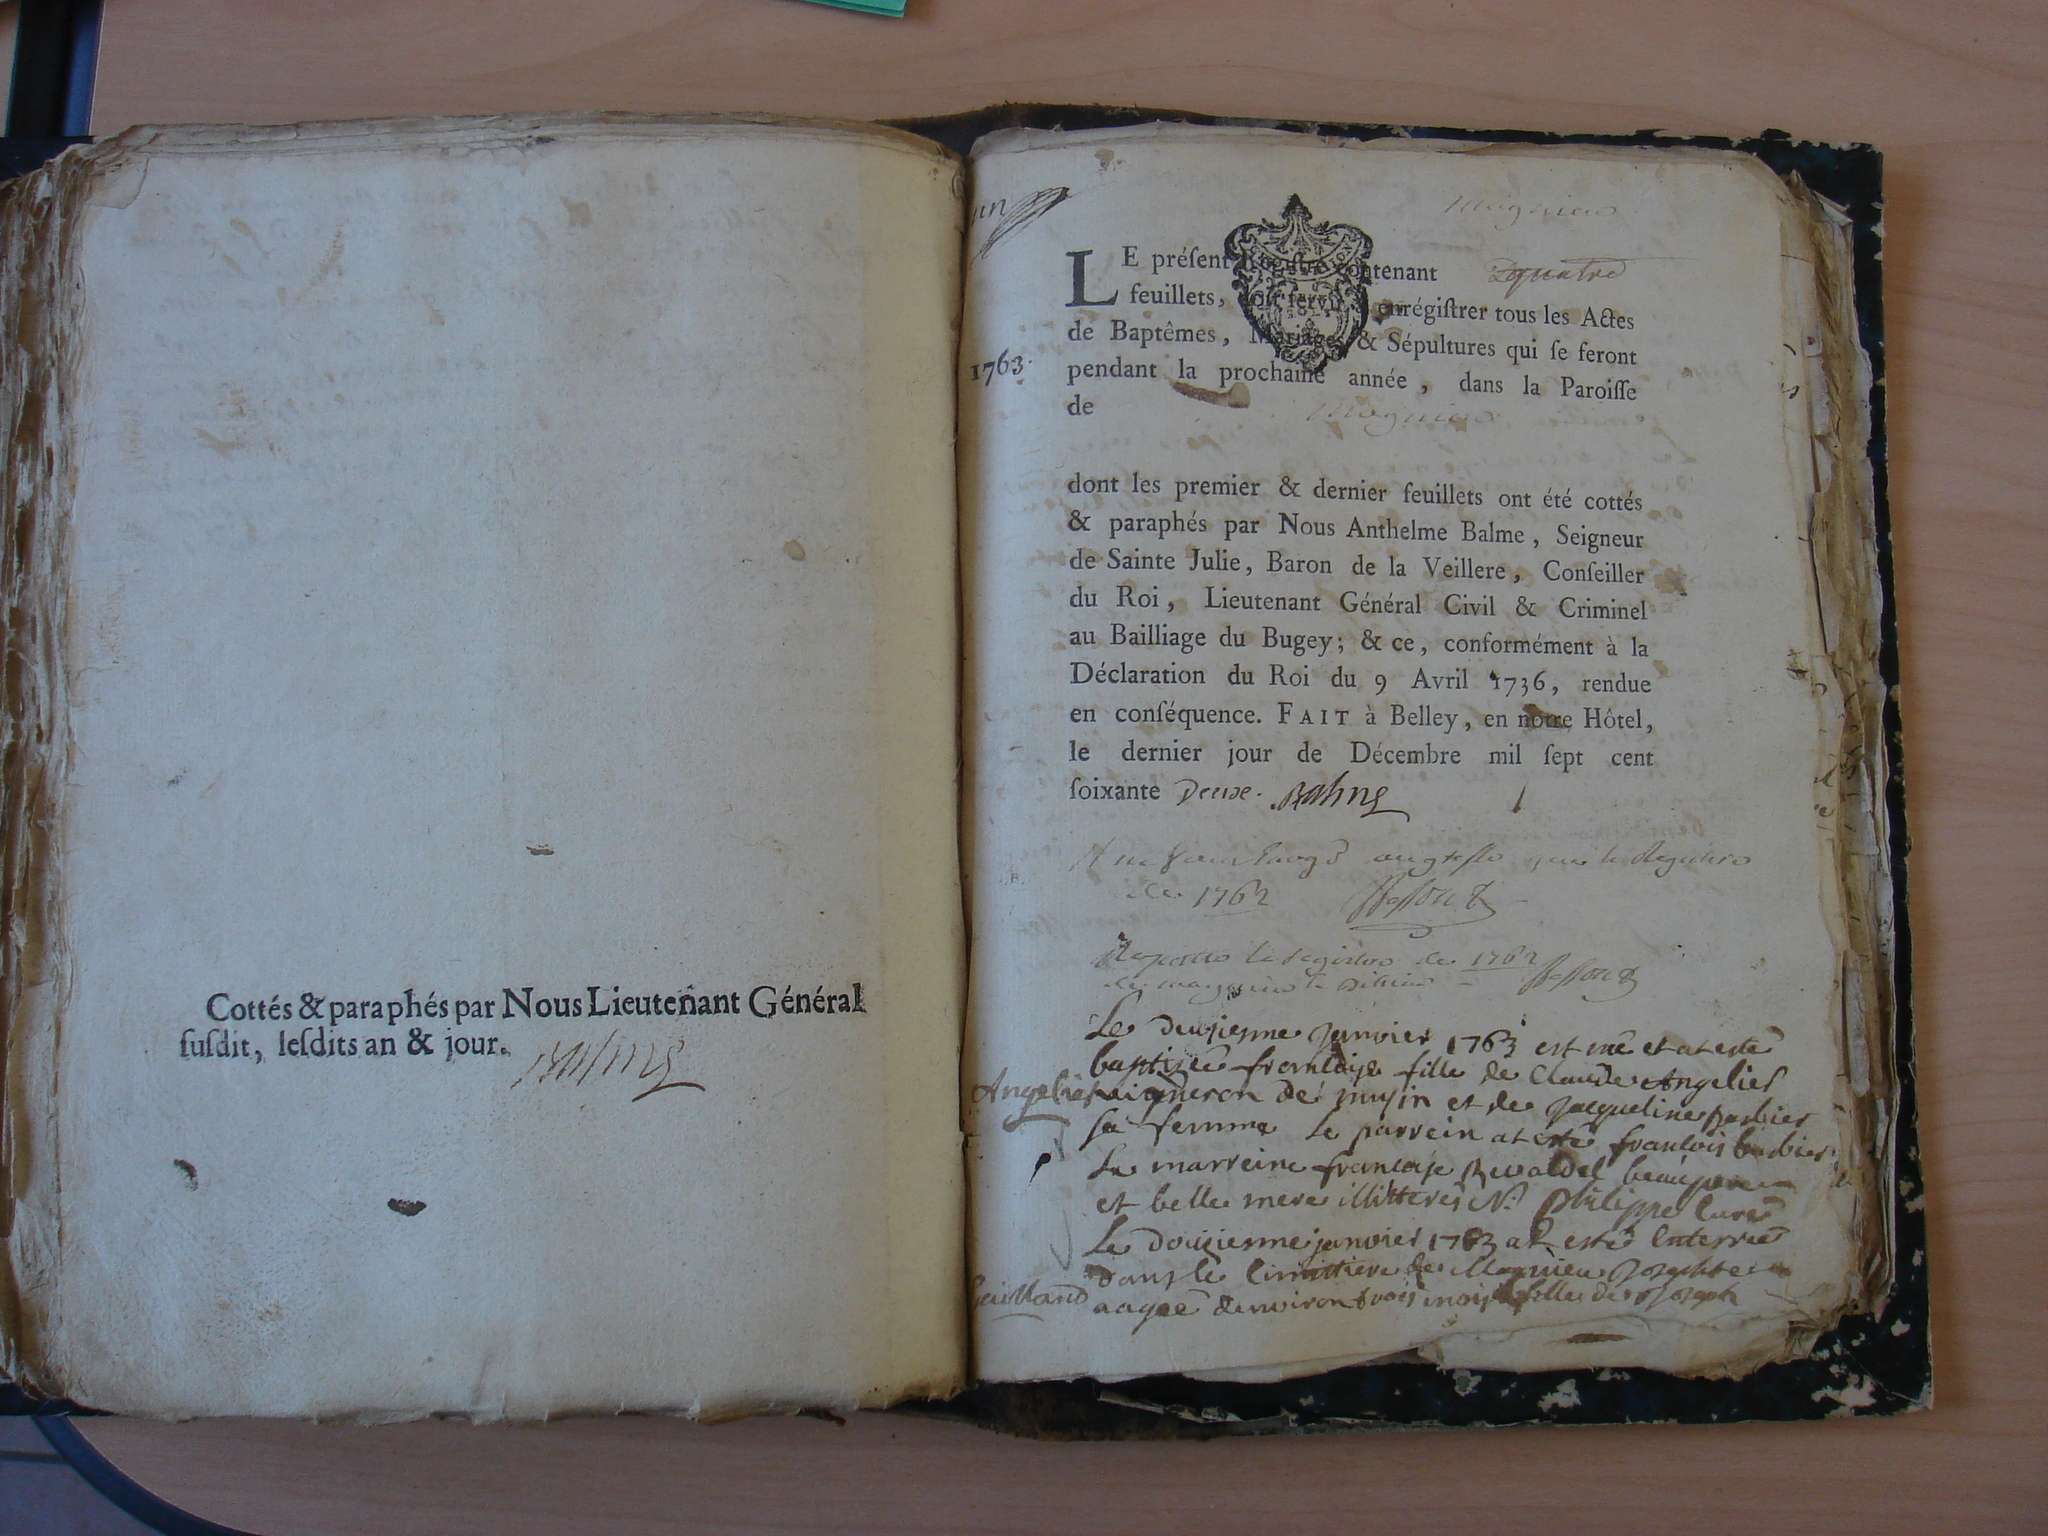 Cottés & paraphés par Nous Lieutenant Général
ſuſdit, leſdits an & jour. Balme
un
Magnieu
LE préſent Regiſtre contenant quatre
feuillets, doit ſervir à enrégiſtrer tous les Actes
de Baptêmes, Mariages & Sépultures qui ſe feront
1763.
pendant la prochaine année, dans la Paroiſſe
de Magnieu
dont les premier & dernier feuillets ont été cottés
& paraphés par Nous Anthelme Balme, Seigneur
de Sainte Julie, Baron de la Veillere, Conſeiller
du Roi, Lieutenant Général Civil & Criminel
au Bailliage du Bugey; & ce, conformément à la
Déclaration du Roi du 9 Avril 1736, rendue
en conſéquence. FAIT à Belley, en notre Hôtel,
le dernier jour de Décembre mil ſept cent
ſoixante Deux. Balme
au greffe le Registre
de 1762
le registre de 1762
de
Le deuzieme janvier 1763 est née et at esté
baptizée francoise fille de Claude Angelier
Angelier
vigneron de musin et de Jacqueline barbier
sa femme le parrein at esté francois barbier
La marreine francoise beaupere
et belle mere illitteres N. Philippe curé
Le douzieme janvier 1763 at esté enterrée
dans le cimittiere de Magnieu Josephte
Gailland
aagée denviron trois mois fille de Joseph